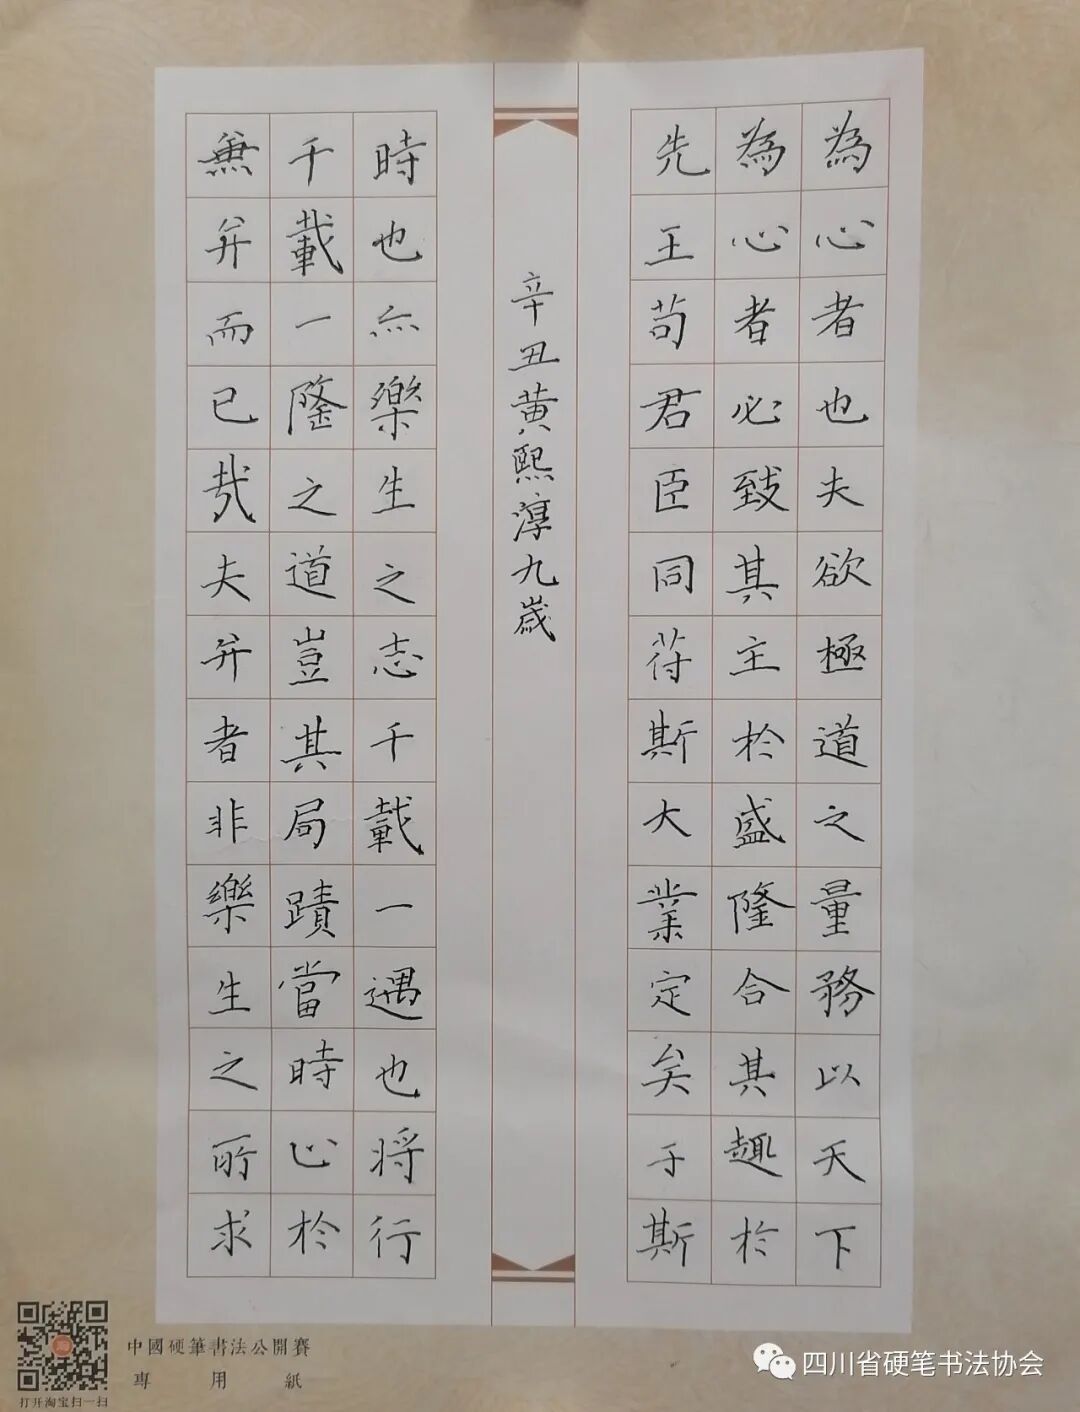 為心者也夫欲極道之量務以天下
為心者必致其主於盛隆合其趣於
先王苟君臣同苻斯大業定矣于斯
辛丑黄熙淳九歲
時也亦樂生之志千載一遇也将行
千載一隆之道豈其局蹟當時止於
兼并而已哉夫并者非樂生之所求
中國硬筆書法公開賽
專用紙
打开淘宝扫一扫
四川省硬笔书法协会